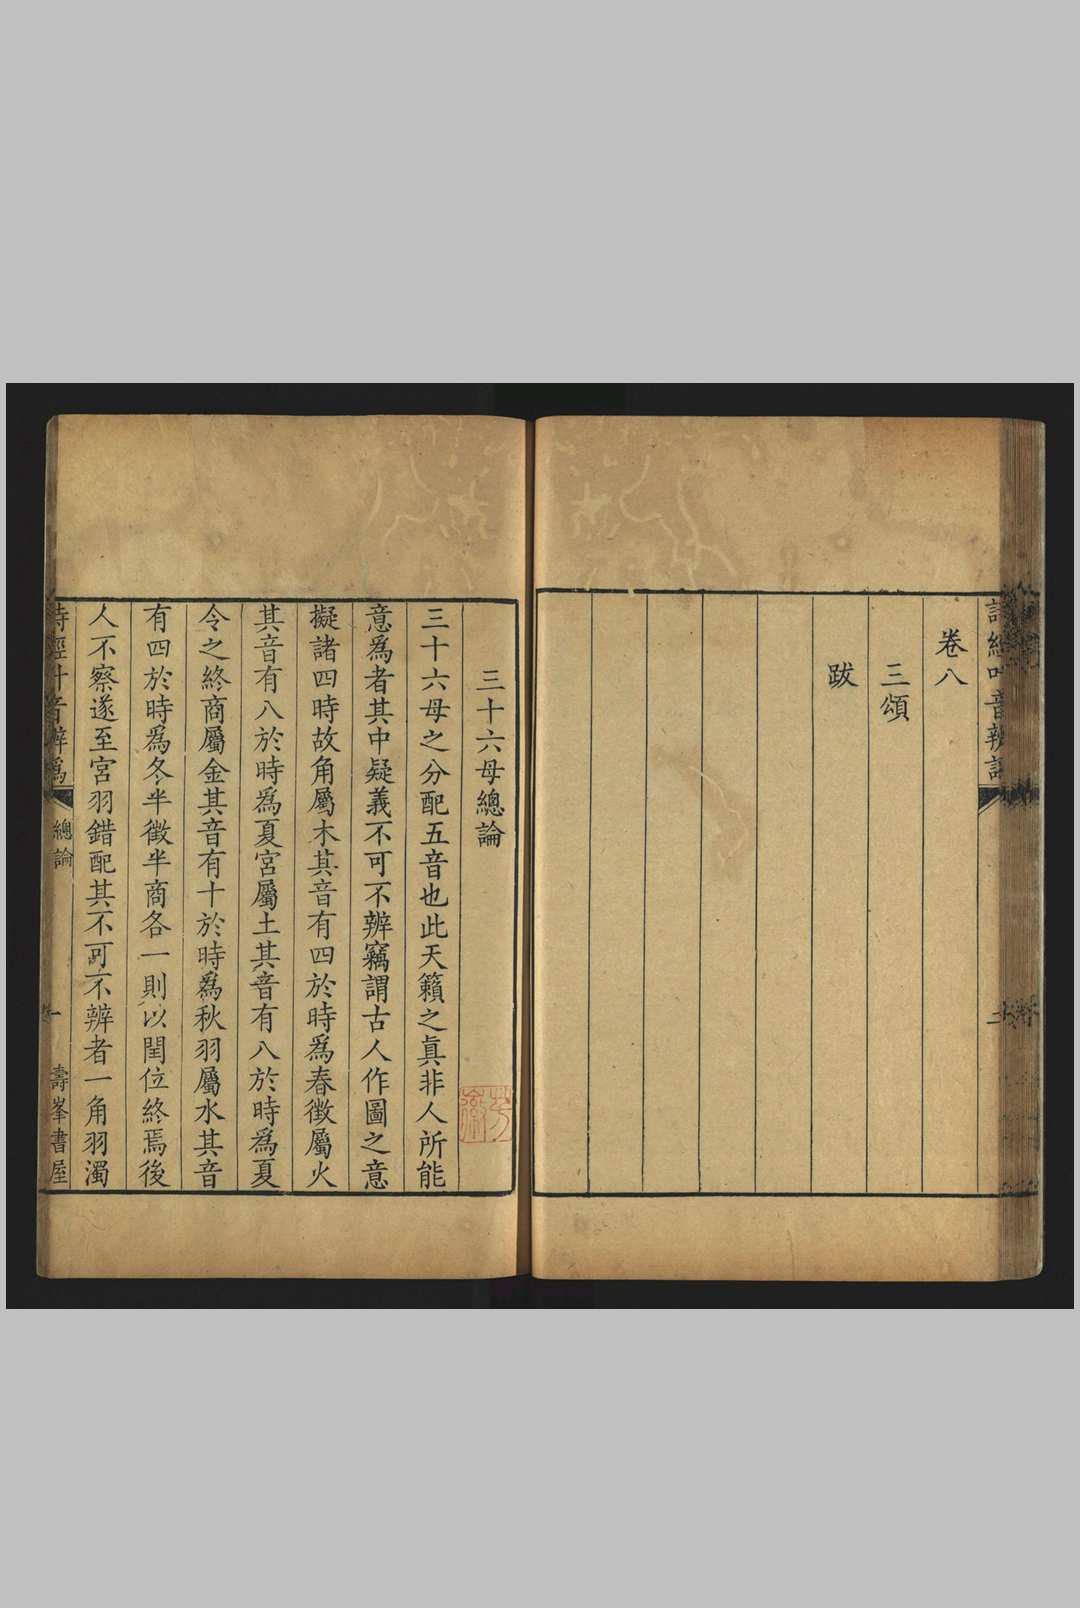 卷八
三頌
跋
三十六母總論
三十六母之分配五音也此天籟之眞非人所能
意爲者其中疑義不可不辨竊謂古人作圖之意
擬諸四時故角屬木其音有四於時爲春徵屬火
其音有八於時爲夏宮屬土其音有八於時爲夏
令之終商屬金其音有十於時爲秋羽屬水其音
有四於時爲冬半徵半商各一則以閏位終焉後
人不察遂至宮羽錯配其不可不辨者一角羽濁
總論
一
壽峯書屋